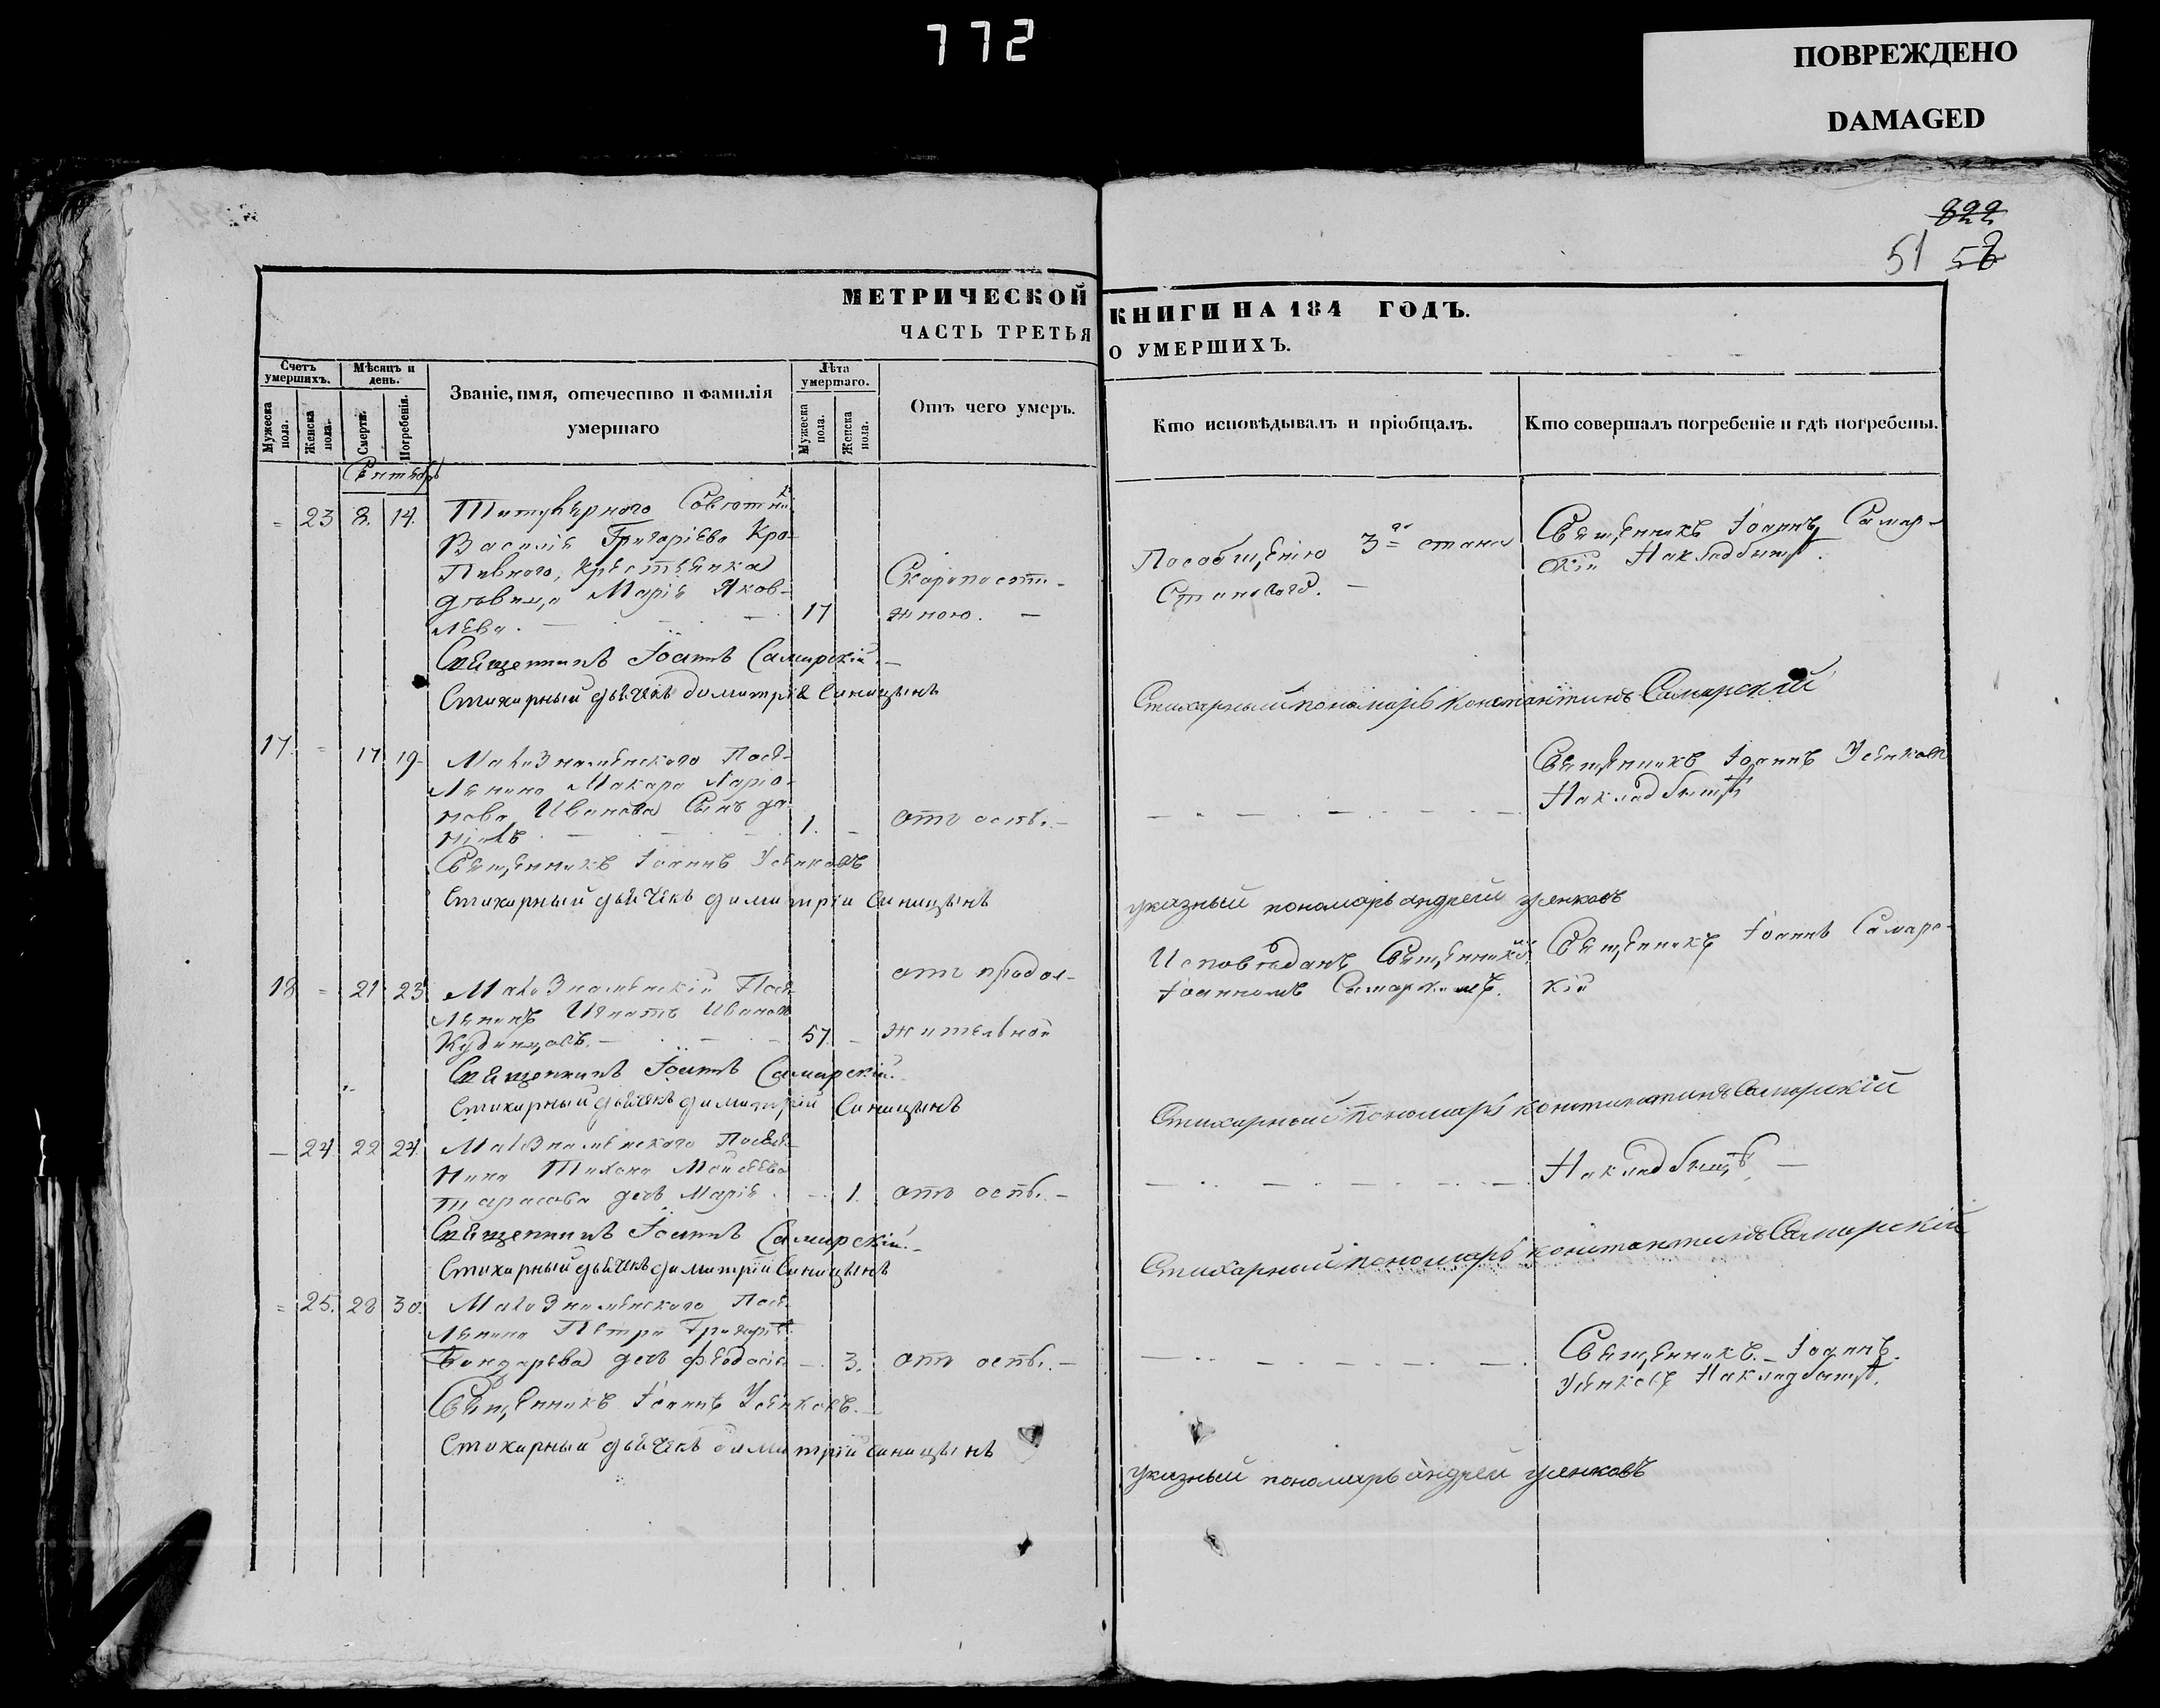 772
ПОВРЕЖДЕНО
DAMAGED
822
51 58
МЕТРИЧЕСКОЙ КНИГИ НА 184 ГОДЪ.
ЧАСТЬ ТРЕТЬЯ О УМЕРШИХЪ.
Счетъ умершихъ.
Мѣсяцъ и день.
Званіе, имя, отечество и фамилія умершаго
Лѣта умершаго.
Отъ чего умеръ.
Кто исповѣдывалъ и пріобщалъ.
Кто совершалъ погребеніе и гдѣ погребены.
Мужеска пола.
Женска пола.
Смерти.
Погребенія.
Мужеска пола.
Женска пола.
Сентябрь
23 8. 14. Титулярного Совѣтника
Василія Григоріева Кро-
пивного, крестьянка
дѣвица Марія Яков-
лева. 17
Скоропости-
жною. —
Пособщенію 3го стана
Становаго. —
Священникъ Іоаннъ Самар-
скій На кладбищѣ.
Священникъ Іоаннъ Самарскій. —
Стихарный дьячекъ Димитрій Синицынъ
Стихарный пономарь Константинъ Самарскій
17. = 17 19. Малознаменского Посе-
ленина Макара Ларіо-
нова Иванова Сынъ Да-
ніилъ 1. —
отъ оспы. —
Священникъ Іоаннъ Усенковъ
На кладбищѣ
Священникъ Іоаннъ Усенковъ
Стихарный дьячекъ Димитрій Синицынъ
указный пономарь андрей усенковъ
18 = 21 23 Малознаменскій Посе-
ленинъ Игнатъ Ивановъ
Кудинцовъ. — 57. —
отъ продол-
жительной
Исповѣданъ Священникомъ
Іоанномъ Самарскимъ.
Священникъ Іоаннъ Самарс-
кій
Священникъ Іоаннъ Самарскій.
Стихарный дьячекъ Димитрій Синицынъ
Стихарный пономарь Константинъ Самарскій
— 24. 22 24. Малознаменского Поселе-
нина Тихона Мойсеева
Тарасова дочь Марія. — 1.
отъ оспы. —
На кладбищѣ. —
Священникъ Іоаннъ Самарскій. —
Стихарный дьячекъ Димитрій Синицынъ
Стихарный пономарь Константинъ Самарскій
= 25. 28 30. Малознаменского Посе-
ленина Петра Григорьева
Бондарева дочь Феодосія — 3.
отъ оспы. —
Священникъ. — Іоаннъ
Усенковъ На кладбищѣ.
Священникъ Іоаннъ Усенковъ. —
Стихарный дьячекъ Димитрій Синицынъ
указный пономарь андрей усенковъ